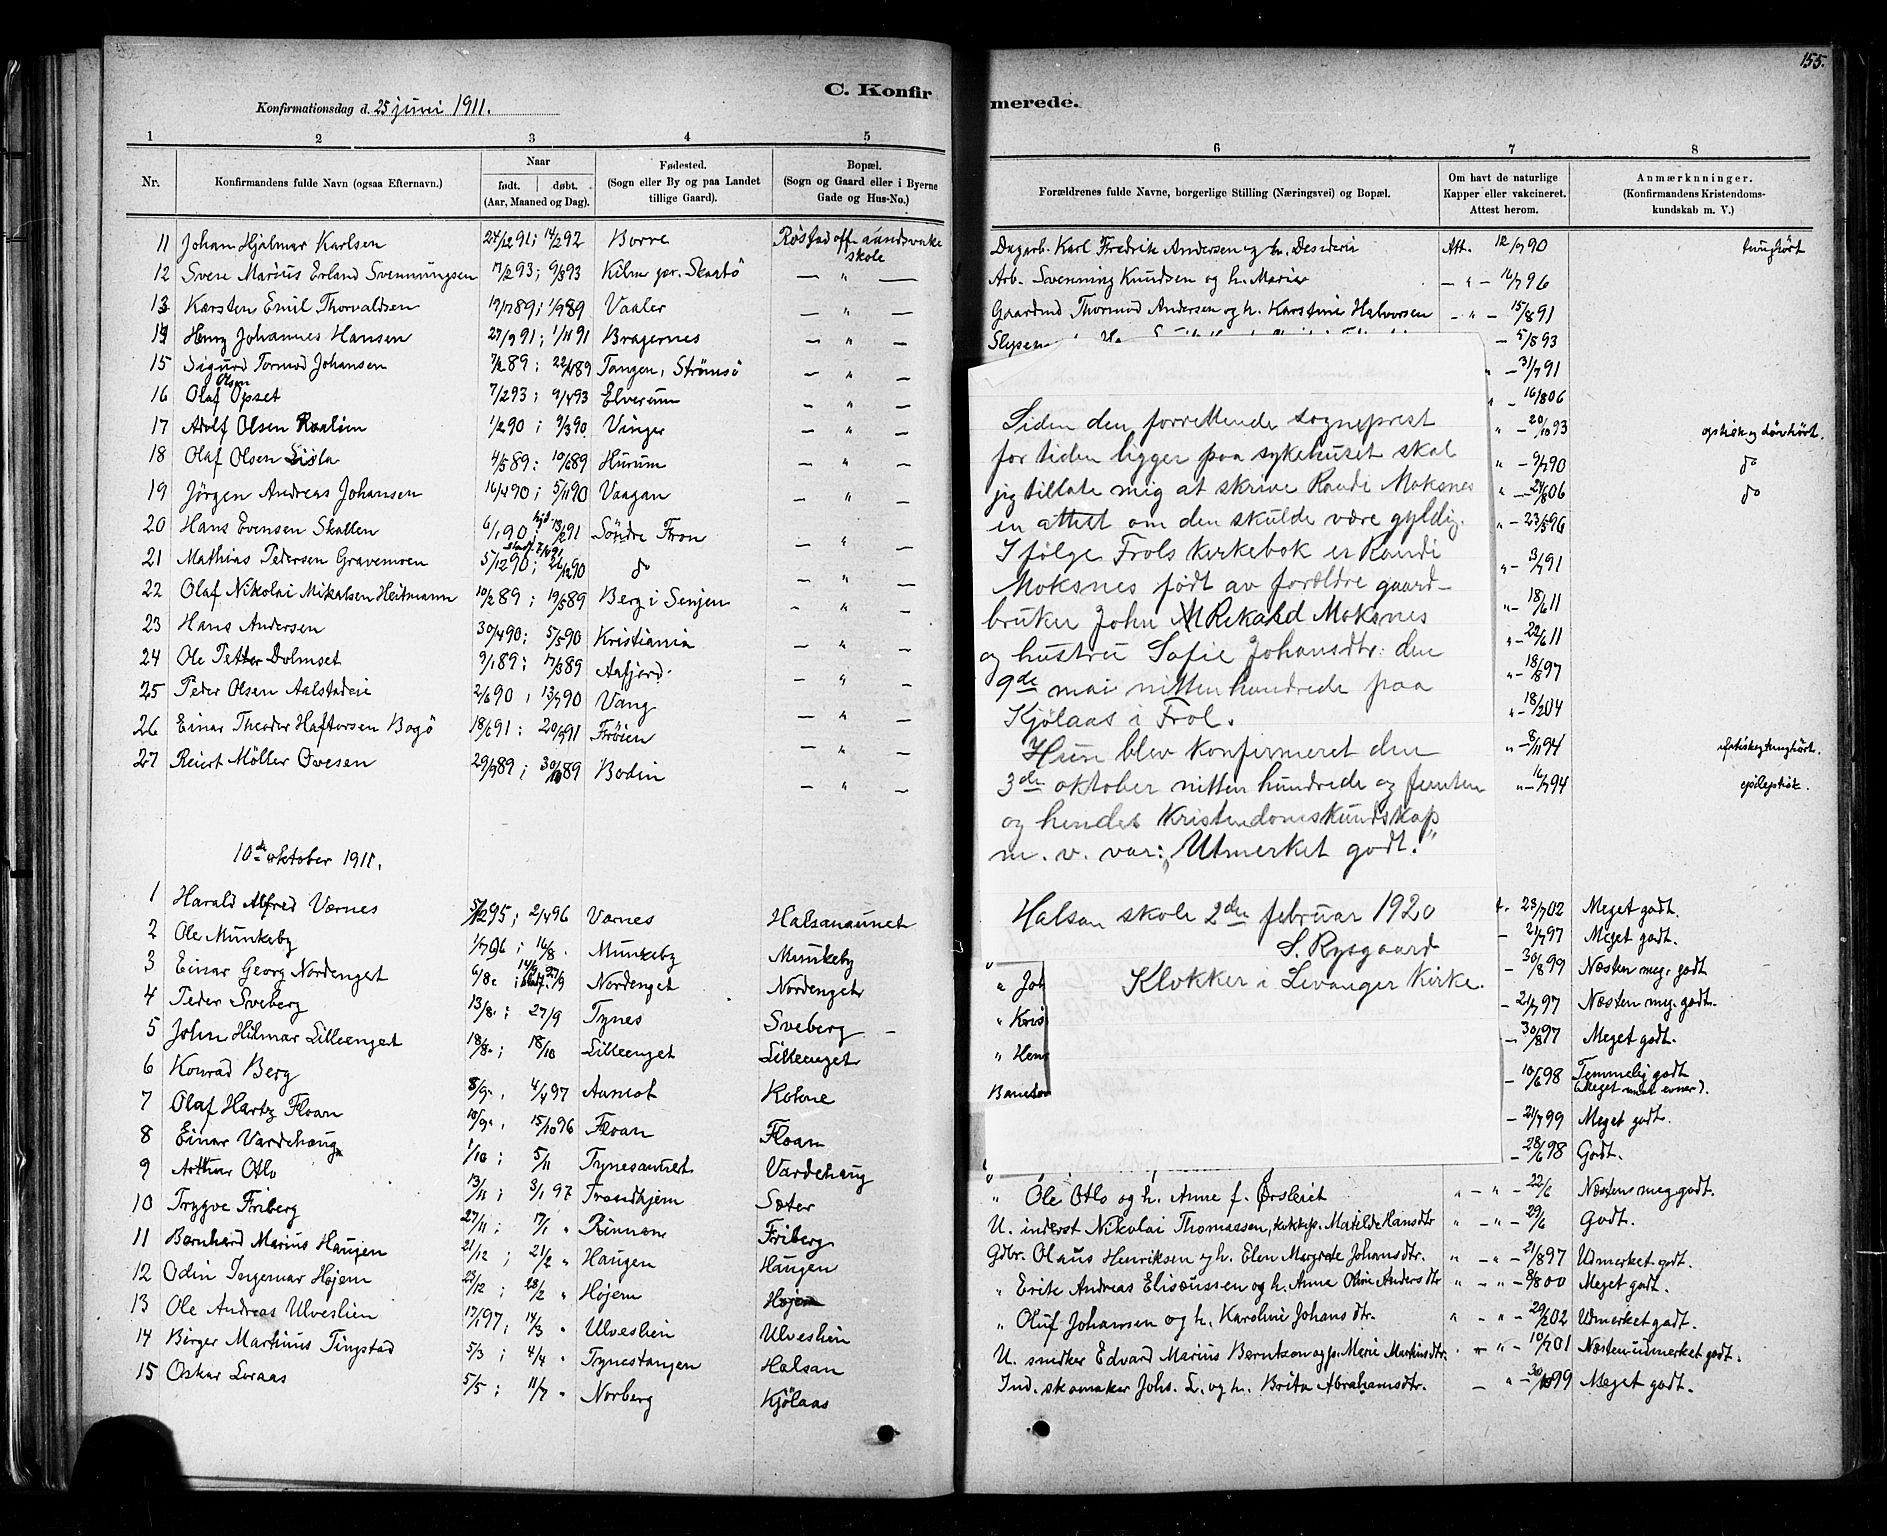 155.
C. Konfirmerede.
Konfirmationsdag d. 25 juni 1911.
1 2 3 4 5 6 7 8
Nr.
Konfirmandens fulde Navn (ogsaa Efternavn.)
Naar
født. døbt.
(Aar, Maaned og Dag).
Fødested.
(Sogn eller By og paa Landet
tillige Gaard).
Bopæl.
(Sogn og Gaard eller i Byerne
Gade og Hus-No.)
Forældrenes fulde Navne, borgerlige Stilling (Næringsvei) og Bopæl.
Om havt de naturlige
Kapper eller vakcineret.
Attest herom.
Anmærkninger.
(Konfirmandens Kristendoms-
kundskab m. V.)
11 Johan Hjalmar Karlsen 24/12 91; 14/2 92 Borre Røstad off. aandsvake skole Dagarb. Karl Fredrik Andersen og h. Desideria Att. 12/7 90 tunghørt
12 Svere Marius Erland Svenningsen 17/2 93; 9/3 93 Kilen pr. Skaatö — " — Arb. Svenning Knudsen og h. Marie — " — 14/7 96
13 Karsten Emil Thorvaldsen 19/7 89; 1/9 89 Vaaler — " — Gaardmd Thormod Andersen og h. Karstine Halvorsen — " — 15/8 91
14 Henry Johannes Hansen 27/9 91; 1/11 91 Bragernes — " — — 5/8 93
15 Sigurd Tormod Johansen 7/2 89; 22/4 89 Tangen, Strömsö — " — " — 31/7 91
16 Olaf Olsen Opset 7/2 93; 9/4 93 Elverum — " — " — 16/8 06
17 Adolf Olsen Raalien 1/2 90; 9/3 90 Vinger — " — " — 20/10 93
18 Olaf Olsen Lisla 4/5 89; 10/6 89 Hurum — " — " — 9/7 90 do
19 Jörgen Andreas Johansen 16/4 90; 5/11 90 Vaagan — " — " — 24/8 06 do
20 Hans Evensen Skallen 6/1 90; 13/2 91 Söndre Fron — " — " — 23/5 96
21 Mathias Pedersen Gravemoen 5/12 90; 26/12 90 do — " — " — 3/7 91
22 Olaf Nikolai Mikalsen Heitmann 10/2 89; 19/5 89 Berg i Senjen — " — " — 18/6 11
23 Hans Andersen 30/4 90; 5/5 90 Kristiania — " — " — 22/6 11
24 Ole Petter Dolmset 9/1 89; 17/3 89 Aafjord — " — " — 18/8 97
25 Peder Olsen Aalstadeie 2/6 90; 13/7 90 Vang — " — " — 18/2 04
26 Einar Theodor Haftorsen Bogö 18/6 91; 20/9 91 Frøien — " — " — 8/11 94
27 Reiert Möller Ovesen 29/9 89; 30/10 89 Bodin — " — " — 16/7 94 epileptisk.
Siden den forrettende sogneprest
for tiden ligger paa sykehuset skal
jeg tillate mig at skrive Randi Moksnes
en attest om den skulde være gyldig.
I følge Frols kirkebok er Randi
Moksnes født av forældre gaard-
bruker John Rikard Moksnes
og hustru Sofie Johansdtr. den
9de mai nittenhundrede paa
Kjölaas i Frol.
Hun blev konfirmeret den
3die oktober nittenhundrede og femten
og hendes kristendomskundskap
m. v. var: „Utmerket godt."
Halsan skole 2den februar 1920
S. Rysgaard
Klokker i Levanger kirke.
10de oktober 1911.
1 Harald Alfred Værnes 5/12 95; 2/4 96 Værnes Halsanaunet 23/7 02 Meget godt.
2 Ole Munkeby 1/7 96; 16/8 Munkeby Munkeby — 21/7 97 Meget godt.
3 Einar Georg Nordenget 6/8 27/9 Nordenget Nordenget — 30/8 99 Næsten meg. godt
4 Peder Sveberg 13/8; 27/9 Tynes Sveberg " Joh — 21/7 97 Næsten meg. godt.
5 John Hilmar Lilleenget 18/8; 18/10 Lilleenget Lilleenget " Kris — 30/8 97 Meget godt.
6 Konrad Berg 8/9 4/4 97 Aamot Kolne " Hen — 10/6 98 Temmelig godt
7 Olaf Hartz Floan 10/9 15/10 96 Floan Floan — 21/7 99 Meget godt.
8 Einar Vardehaug 1/10; 5/11 Tynesaunet Vardehaug — 28/6 98 Godt.
9 Arthur Otlo 13/11; 3/1 97 Trondhjem Sæter " Ole Otlo og h. Anne f. Ørsleiet " — " — 22/6 Næsten meg godt.
10 Trygve Friberg 27/11; 17/1 " Rinnan Friberg U. inderst Nikolai Thomassen, kokkep. Matilde Hansdtr " — " — 29/6 Godt.
11 Bernhard Marius Haugen 21/12; 21/2 " Haugen Haugen Gdbr. Olaus Henriksen og h. Elen Margrete Johansdtr. " — " — 21/8 97 Udmerket godt.
12 Odin Ingemar Højem 23/12; 28/2 " Højem Højem " Erik Andreas Eliseussen og h. Anna Oline Andersdtr " — " — 8/8 00 Meget godt.
13 Ole Andreas Ulveslien 17/1 97; 14/3 " Ulveslien Ulveslien " Oluf Johansen og h. Karoline Johansdtr. " — " — 29/2 02 Udmerket godt.
14 Birger Martinus Tingstad 5/3; 4/4 " Tynestangen Halsan U. snedker Edvard Marius Berntsen og p. Marie Martinsdtr. " — " — 10/7 01 Næsten udmerket godt.
15 Oskar Loraas 5/5; 11/7 " Norberg Kjölaas Ind. skomaker Johs. L. og h. Brita Abrahamsdtr. — " — 30/10 99 Meget godt.